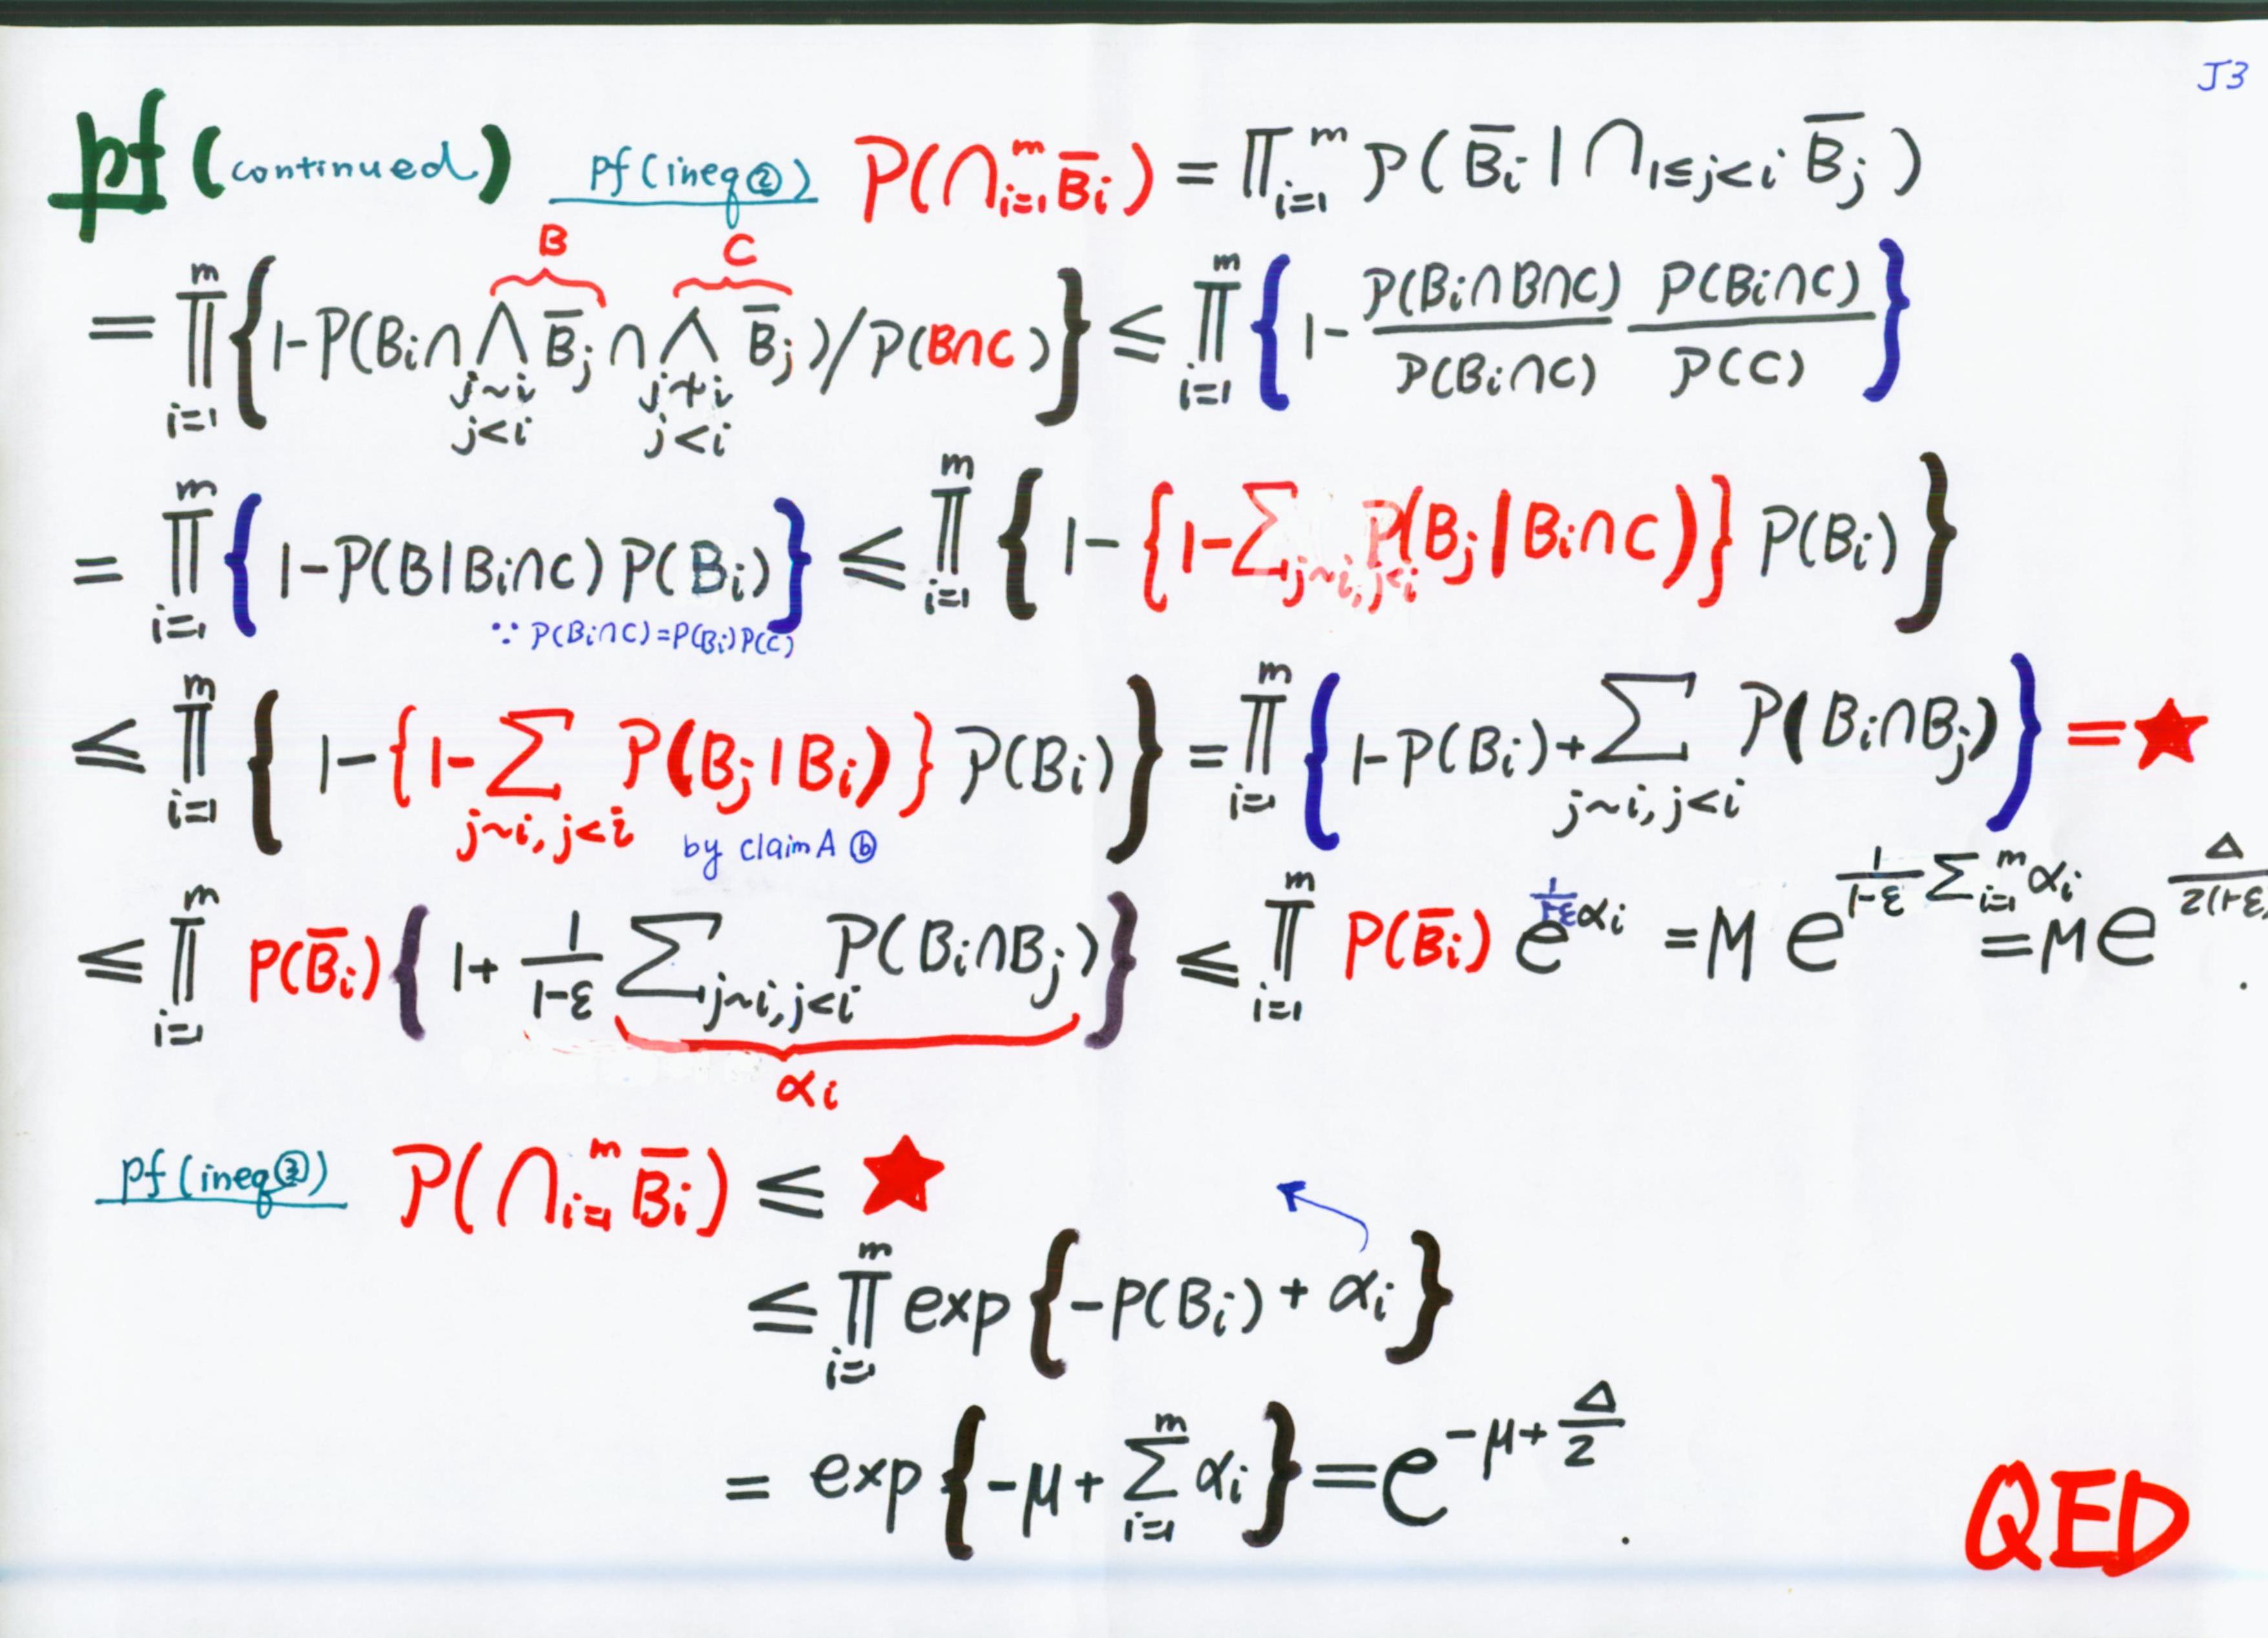 J3
pf (continued) pf (ineq②) P(∩_{i=1}^m B̅_i) = ∏_{i=1}^m P(B̅_i | ∩_{1≤j<i} B̅_j)
B C
= ∏_{i=1}^m {1-P(B_i∩ ⋀_{j~i, j<i} B̅_j ∩ ⋀_{j≁i, j<i} B̅_j)/P(B∩C)} ≤ ∏_{i=1}^m {1- P(B_i∩B∩C)/P(B_i∩C) P(B_i∩C)/P(C)}
= ∏_{i=1}^m {1-P(B|B_i∩C) P(B_i)} ≤ ∏_{i=1}^m {1-{1-∑_{j~i, j<i} P(B_j|B_i∩C)} P(B_i)}
∵ P(B_i∩C)=P(B_i)P(C)
≤ ∏_{i=1}^m {1-{1-∑_{j~i, j<i} P(B_j|B_i)} P(B_i)} = ∏_{i=1}^m {1-P(B_i)+∑_{j~i, j<i} P(B_i∩B_j)} = ★
by claim A ⓑ
≤ ∏_{i=1}^m P(B̅_i) {1+ 1/(1-ε) ∑_{j~i, j<i} P(B_i∩B_j)} ≤ ∏_{i=1}^m P(B̅_i) e^{1/(1-ε) α_i} = M e^{1/(1-ε) ∑_{i=1}^m α_i} = M e^{Δ/2(1-ε)}.
α_i
pf (ineq③) P(∩_{i=1}^m B̅_i) ≤ ★
≤ ∏_{i=1}^m exp {-P(B_i) + α_i}
= exp {-μ+ ∑_{i=1}^m α_i} = e^{-μ+Δ/2}.
QED